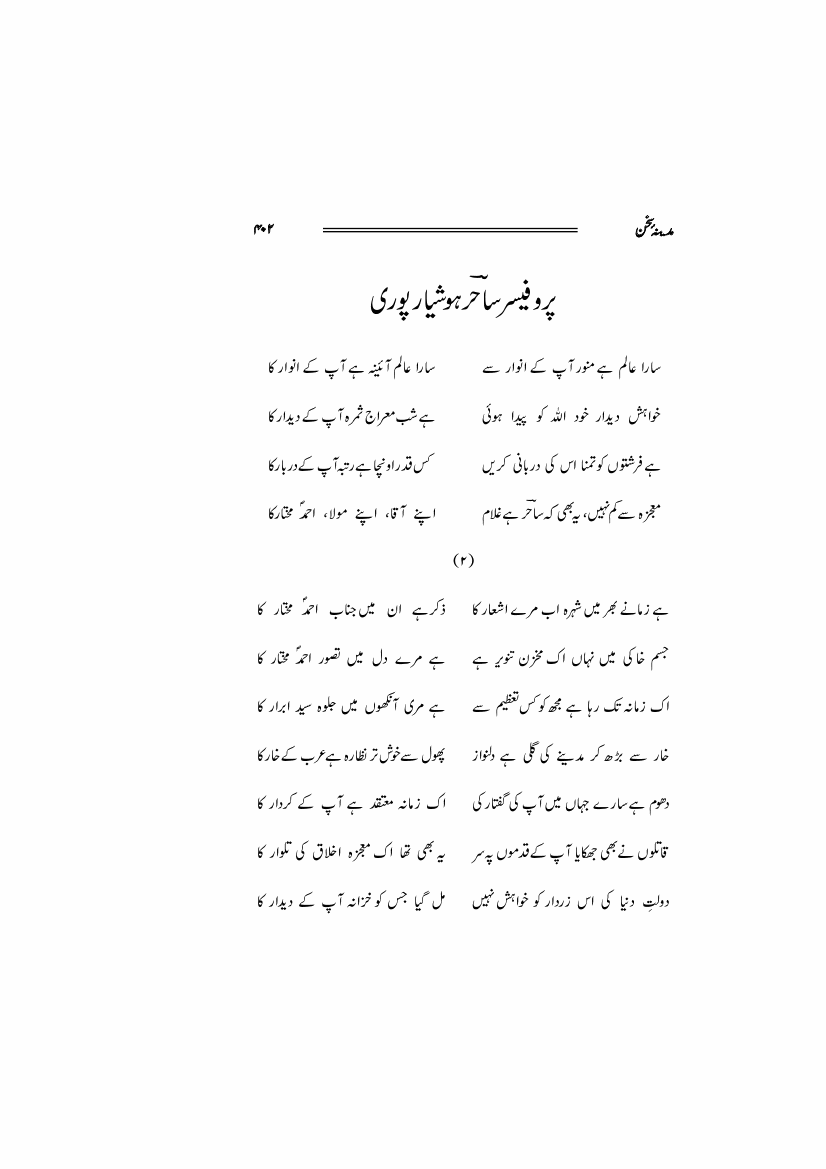 مدینۂ سخن ۴۰۲
پروفیسر ساحرؔ ہوشیار پوری
سارا عالم ہے منور آپ کے انوار سے سارا عالم آئینہ ہے آپ کے انوار کا
خواہش دیدار خود اللہ کو پیدا ہوئی ہے شب معراج ثمرہ آپ کے دیدار کا
ہے فرشتوں کو تمنا اس کی دربانی کریں کس قدر اونچا ہے رتبہ آپ کے دربار کا
معجزہ سے کم نہیں، یہ بھی کہ ساحرؔ ہے غلام اپنے آقا، اپنے مولا، احمدؐ مختار کا
(۲)
ہے زمانے بھر میں شہرہ اب مرے اشعار کا ذکر ہے ان میں جناب احمدؐ مختار کا
جسم خاکی میں نہاں اک مخزن تنویر ہے ہے مرے دل میں تصور احمدؐ مختار کا
اک زمانہ تک رہا ہے مجھ کو کس تعظیم سے ہے مری آنکھوں میں جلوہ سید ابرار کا
خار سے بڑھ کر مدینے کی گلی ہے دلنواز پھول سے خوش تر نظارہ ہے عرب کے خار کا
دھوم ہے سارے جہاں میں آپ کی گفتار کی اک زمانہ معتقد ہے آپ کے کردار کا
قاتلوں نے بھی جھکایا آپ کے قدموں پہ سر یہ بھی تھا اک معجزہ اخلاق کی تلوار کا
دولتِ دنیا کی اس زردار کو خواہش نہیں مل گیا جس کو خزانہ آپ کے دیدار کا